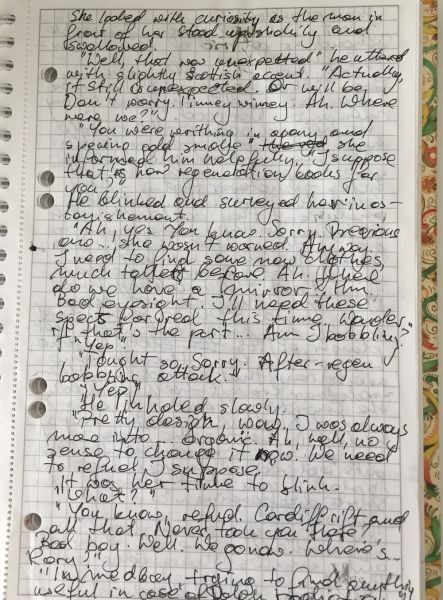 She looked with curiosity as the man in
front of her stood up and
swallowed.
"Well, that was unexpected" he uttered
with slightly Scottish accent. "Actually,
it still is unexpected. Or will be.
Don't worry. Timey wimey. Ah. Where
were we?"
"You were writhing in agony and
spewing gold smoke" she
informed him helpfully. "I suppose
that is how regeneration looks for
you?"
He blinked and surveyed her in as-
tonishment.
"Ah, yes. You know. Sorry. Previous
one... she wasn't warned. Anyway.
I need to find some new clothes,
much taller before. Ah. Where
do we have a mirror? Hm.
Bad eyesight. I'll need these
specs for real this time. Wonder,
if that's the part... Am I babbling?"
"Yep."
"Thought so. Sorry. After-regen
babbling attack."
"Yep"
He inhaled slowly.
"Pretty design, wow. I was always
more into... organic. Ah, well, no
sense to change it now. We need
to refuel, I suppose."
It was her time to blink.
"What?"
"You know, refuel. Cardiff rift and
all that. Never took you there?
Bad boy. Well. We go now. Where's...
Rory?"
"In medbay, trying to find anything
useful in case of